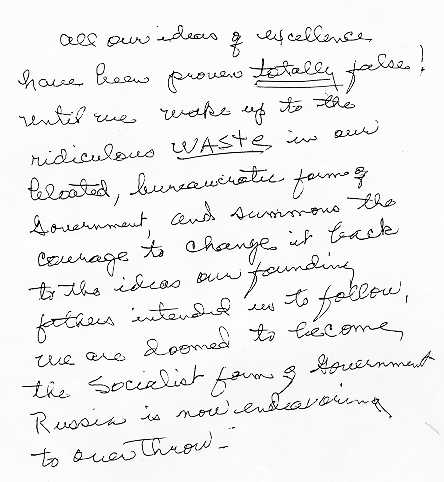 all our ideas of excellence
have been proven totally false!
until we wake up to the
ridiculous WASTE in our
bloated, bureaucratic form of
Government, and summons the
courage to change it back
to the ideas our founding
fathers intended us to follow,
we are doomed to become
the Socialist form of Government
Russia is now endeavoring
to over Throw-